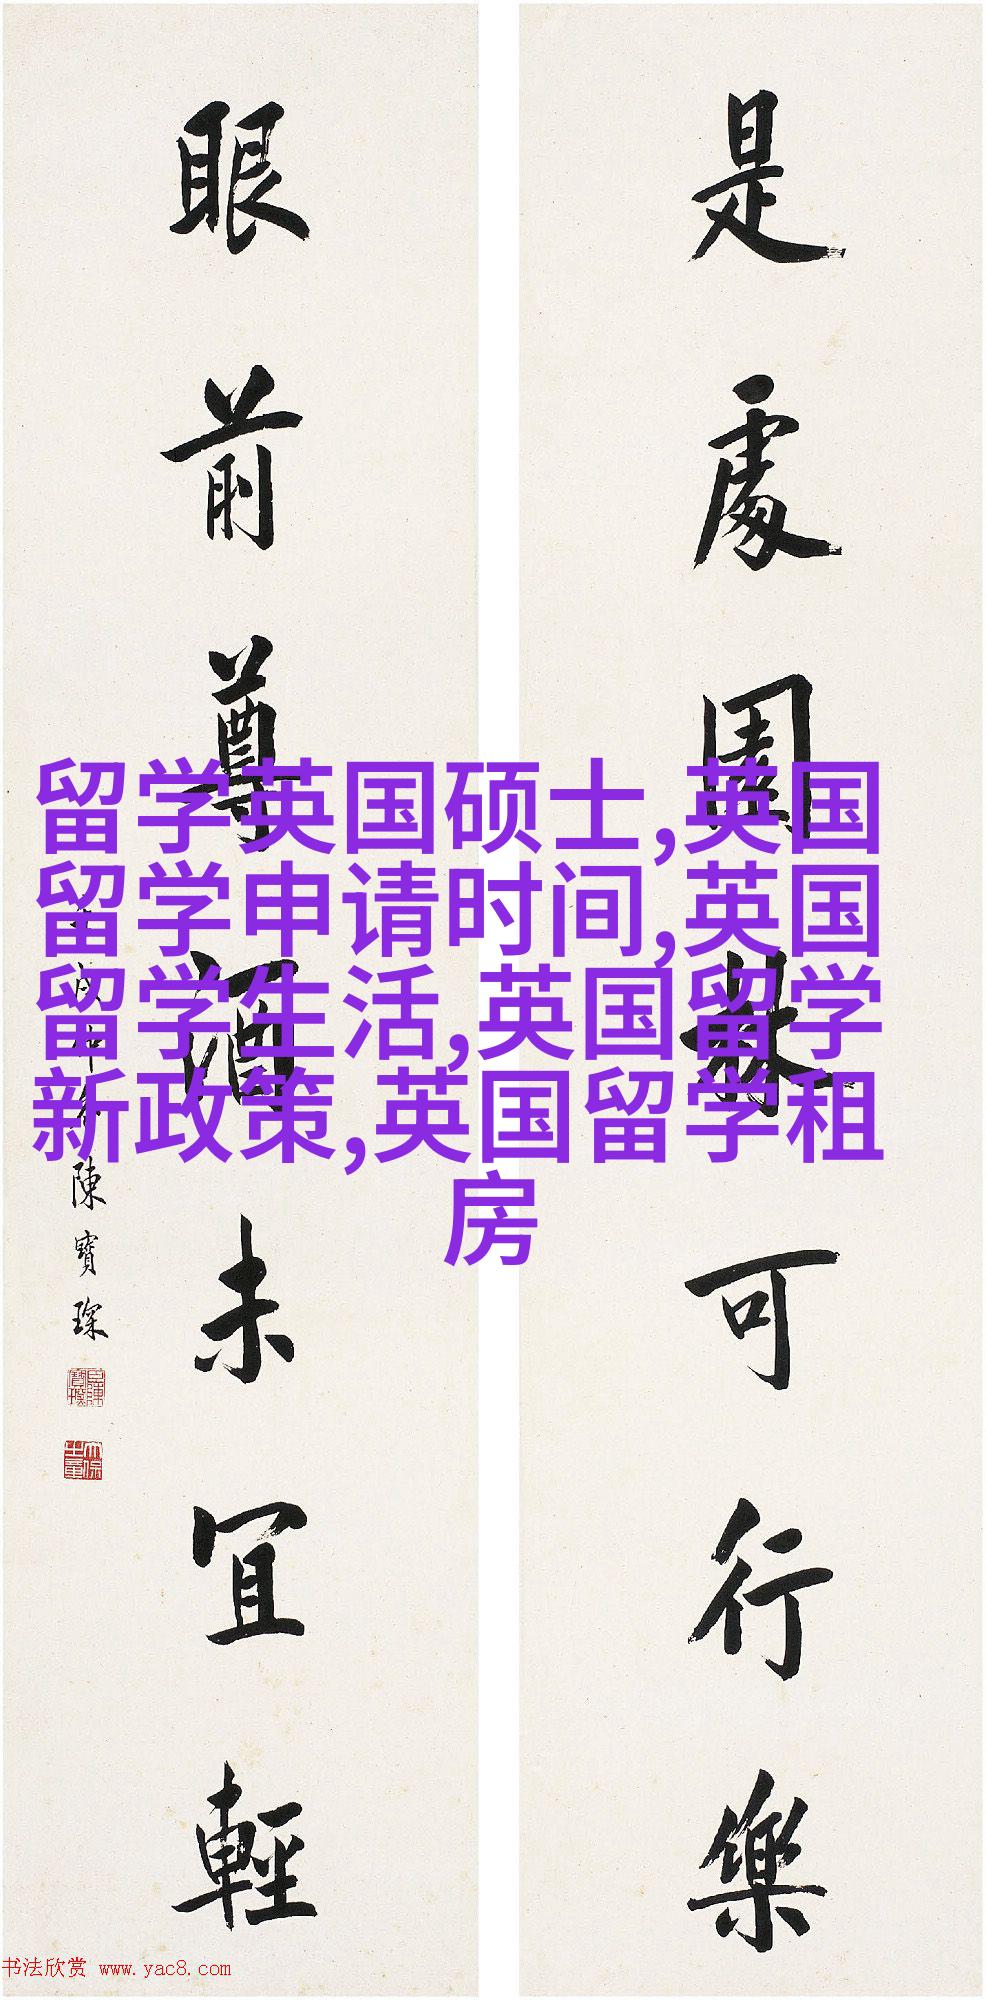 是處園林可行樂
眼前尊酒未宜輕
陳寶琛
留学英国硕士,英国
留学申请时间,英国
留学生活,英国留学
新政策,英国留学租
房
书法欣赏 www.yac8.com